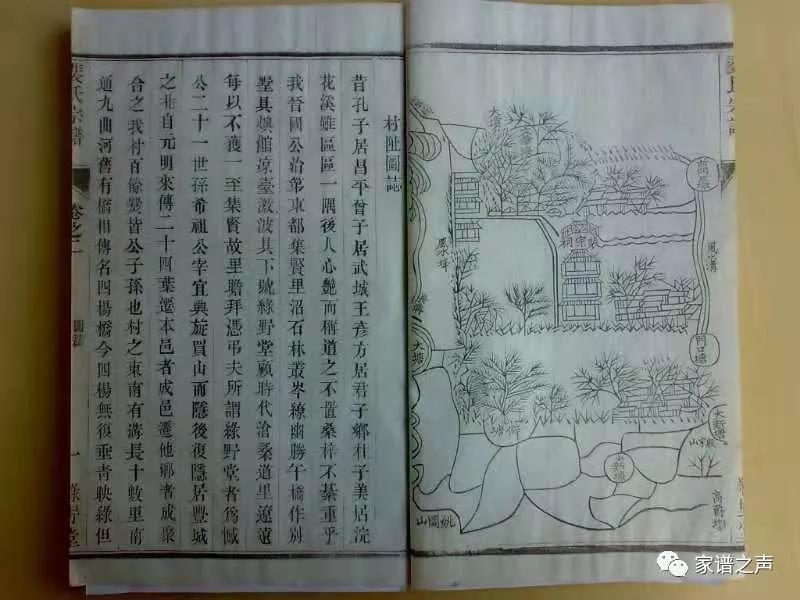 村阯圖誌
昔孔子居昌平曾子居武城王彥方居君子鄉杜子美居浣
花溪雖區區一隅後人心艷而稱道之不置桑梓不綦重乎
我晉國公治第東都集賢里沼石林叢岑繚幽勝午橋作別
墅具燠館凉臺激波其下號綠野堂顧時代滄桑道里遼遠
每以不獲一至集賢故里瞻拜憑弔夫所謂綠野堂者爲憾
公二十一世孫希祖公宰宜興旋買山而隱後復隱居豐城
之北自元明來傳二十四葉遷本邑者成邑遷他鄉者成聚
合之我村百餘爨皆公子孫也村之東南有溝長十數里南
通九曲河舊有橋相傳名四楊橋今四楊無復垂青映綠但
裴氏宗譜
卷之二
圖誌
一
綠野堂
大塘
裴宗祠
鳳水塘
大塘
荷塘
小新塘
大新塘
姚園山
家譜之声